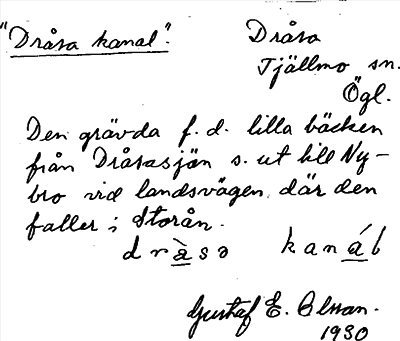 "Dråsa kanal".
Dråsa
Tjällmo sn.
Ögl.
Den grävda f. d. lilla bäcken
från Dråsasjön s. ut till Ny-
bro vid landsvägen där den
faller i Storån.
dràsa kanáb
Gustaf E. Olsson.
1930